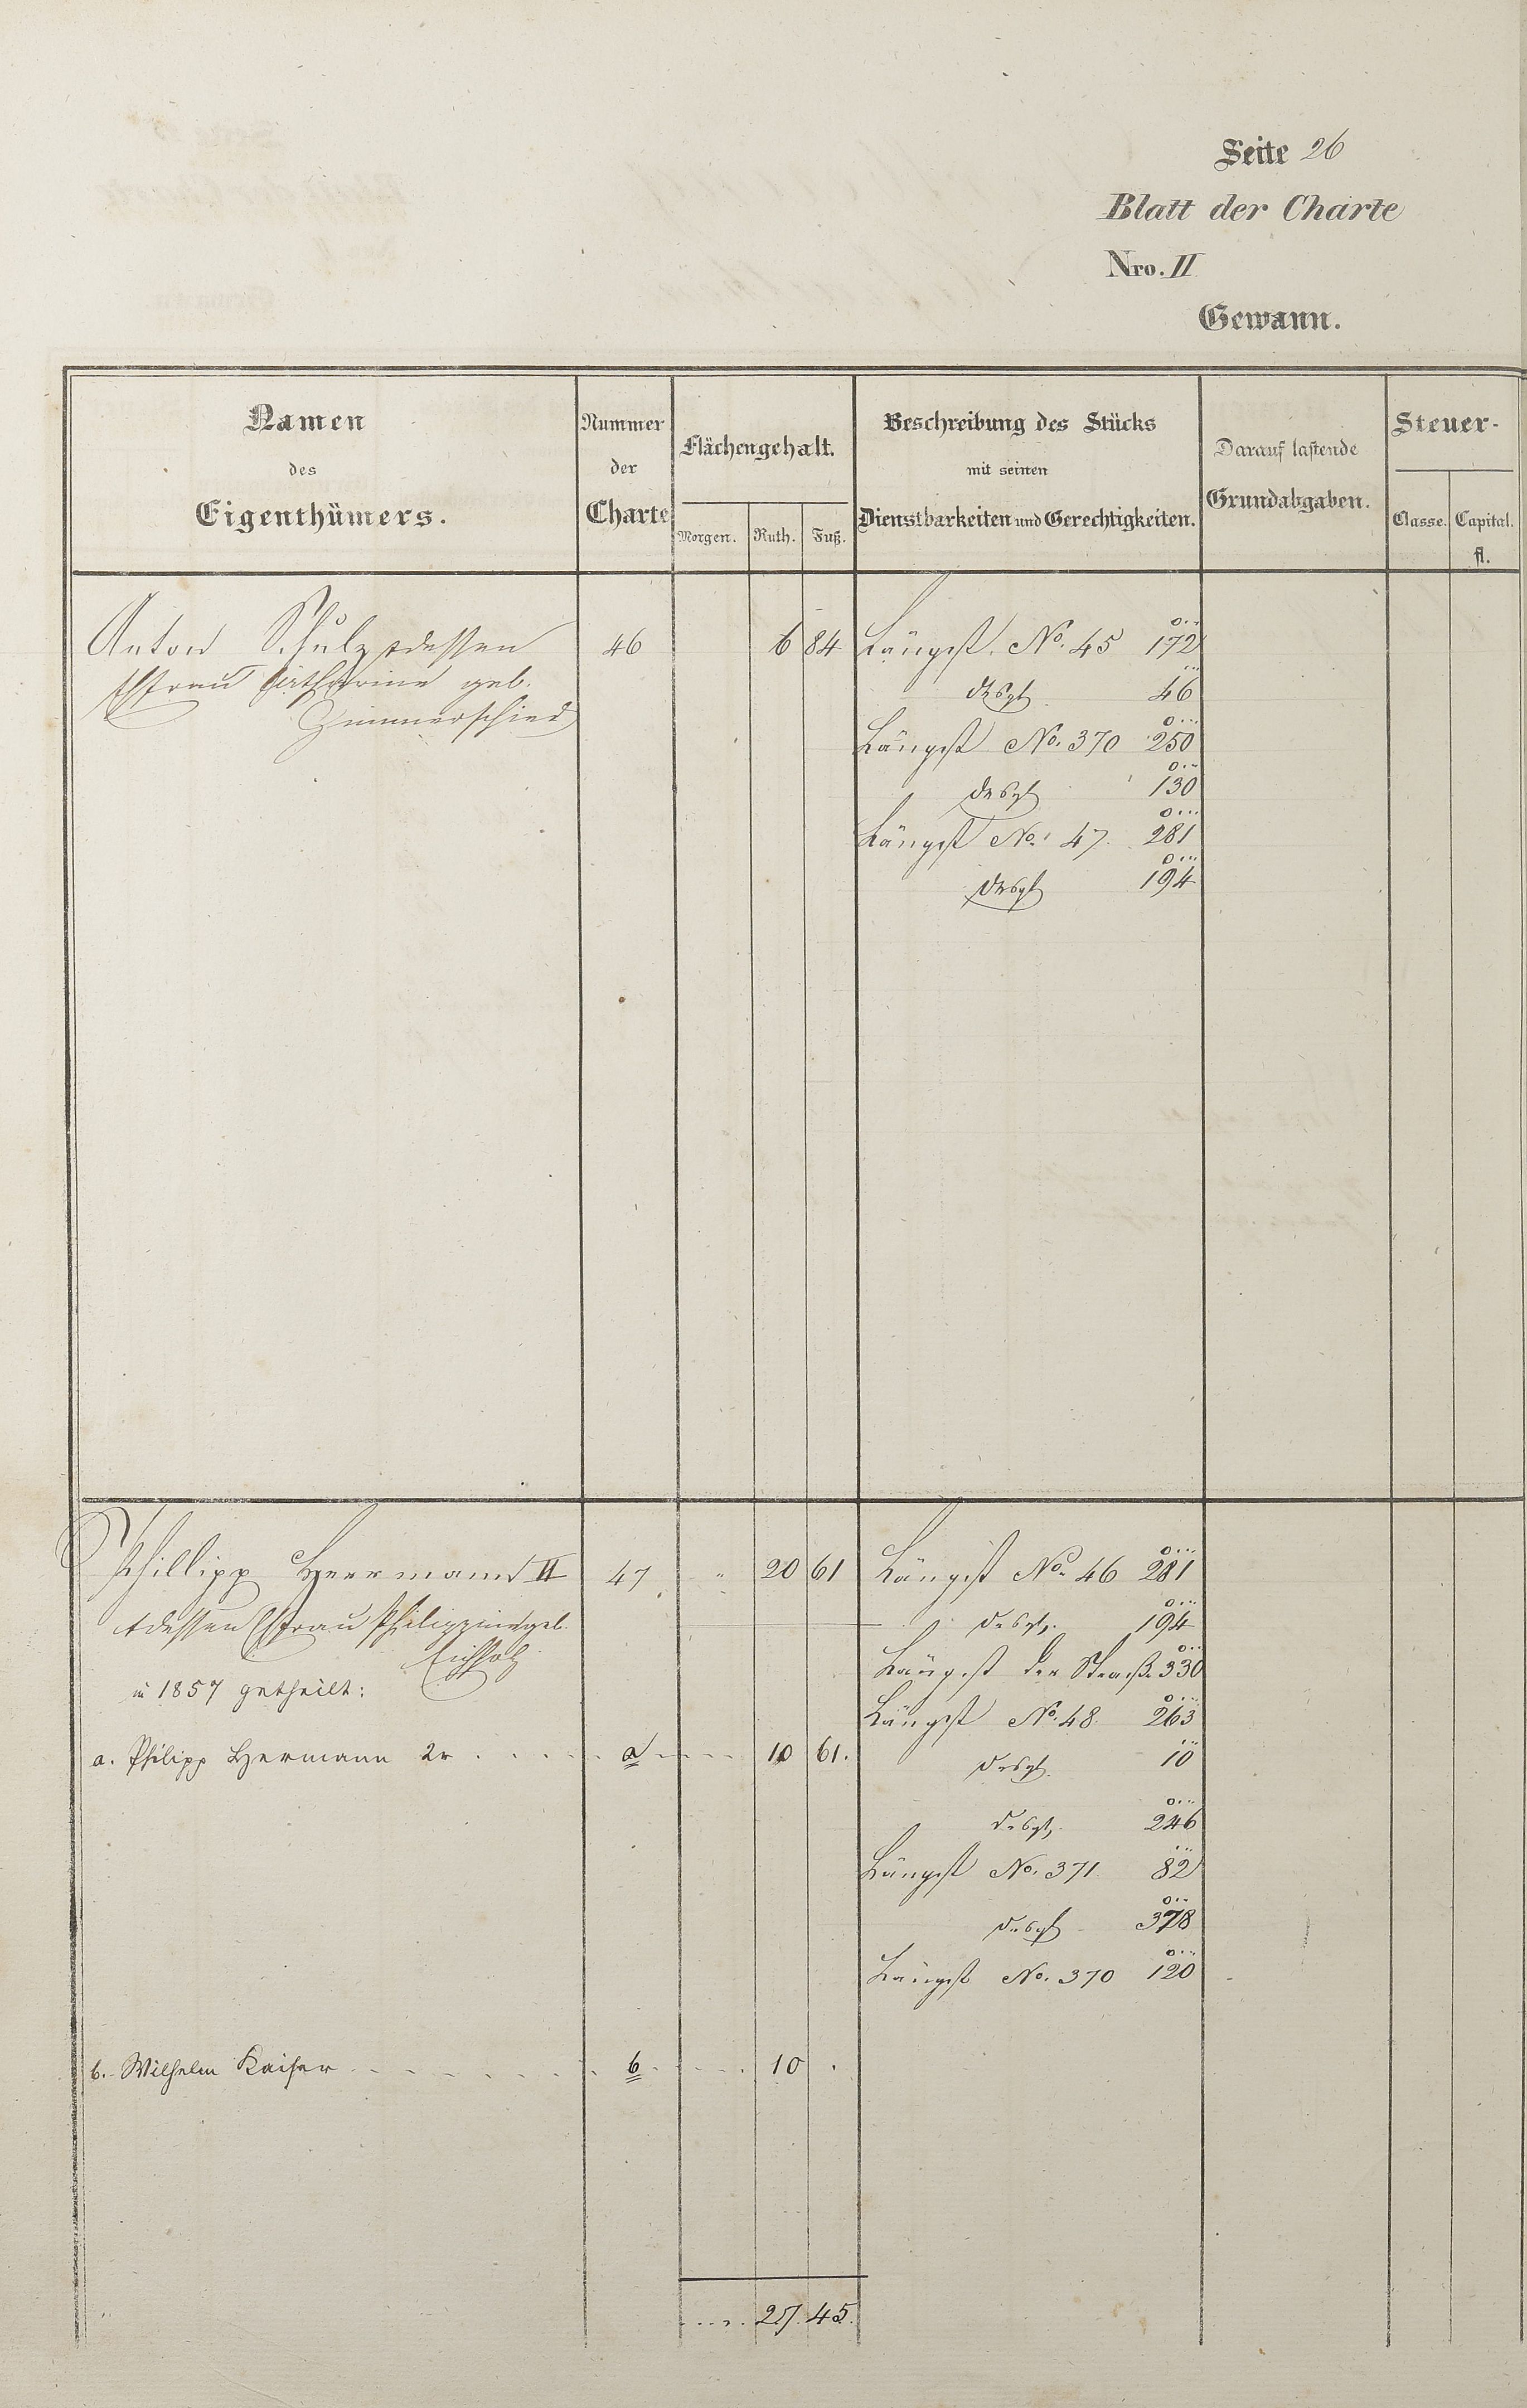 Seite 26
Blatt der Charte
Nro. II
Gewann.
Namen des Eigenthümers.
Nummer der Charte
Flächengehalt.
Morgen. Ruth. Fuß.
Beschreibung des Stücks mit seinen Dienstbarkeiten und Gerechtigkeiten.
Darauf lastende Grundabgaben.
Steuer-
Classe. Capital. fl.
Anton Schulz & dessen 46 6 84 Längst. No. 45 172
Ehfrau Catharine geb. desgl. 46
Zimmerschied
Längst No. 370 250
desgl 130
Längst No. 47. 281
desgl 194
Phillipp Herrmann II 47 " 20 61 Längst No. 46 281
& dessen Ehfrau Philippine geb. desgl. 194
Eichholz
Längst der Straße 330
in 1857 getheilt:
Längst No. 48. 263
a. Philipp Hermann 2r . . . . . a . . . . 10 61. desgl. 10
desgl. 246
Längst No. 371. 82
desgl 378
Längst No. 370 120
b. Wilhelm Kaiser . . . . . . b . . . . 10 .
. . . . 27. 45.